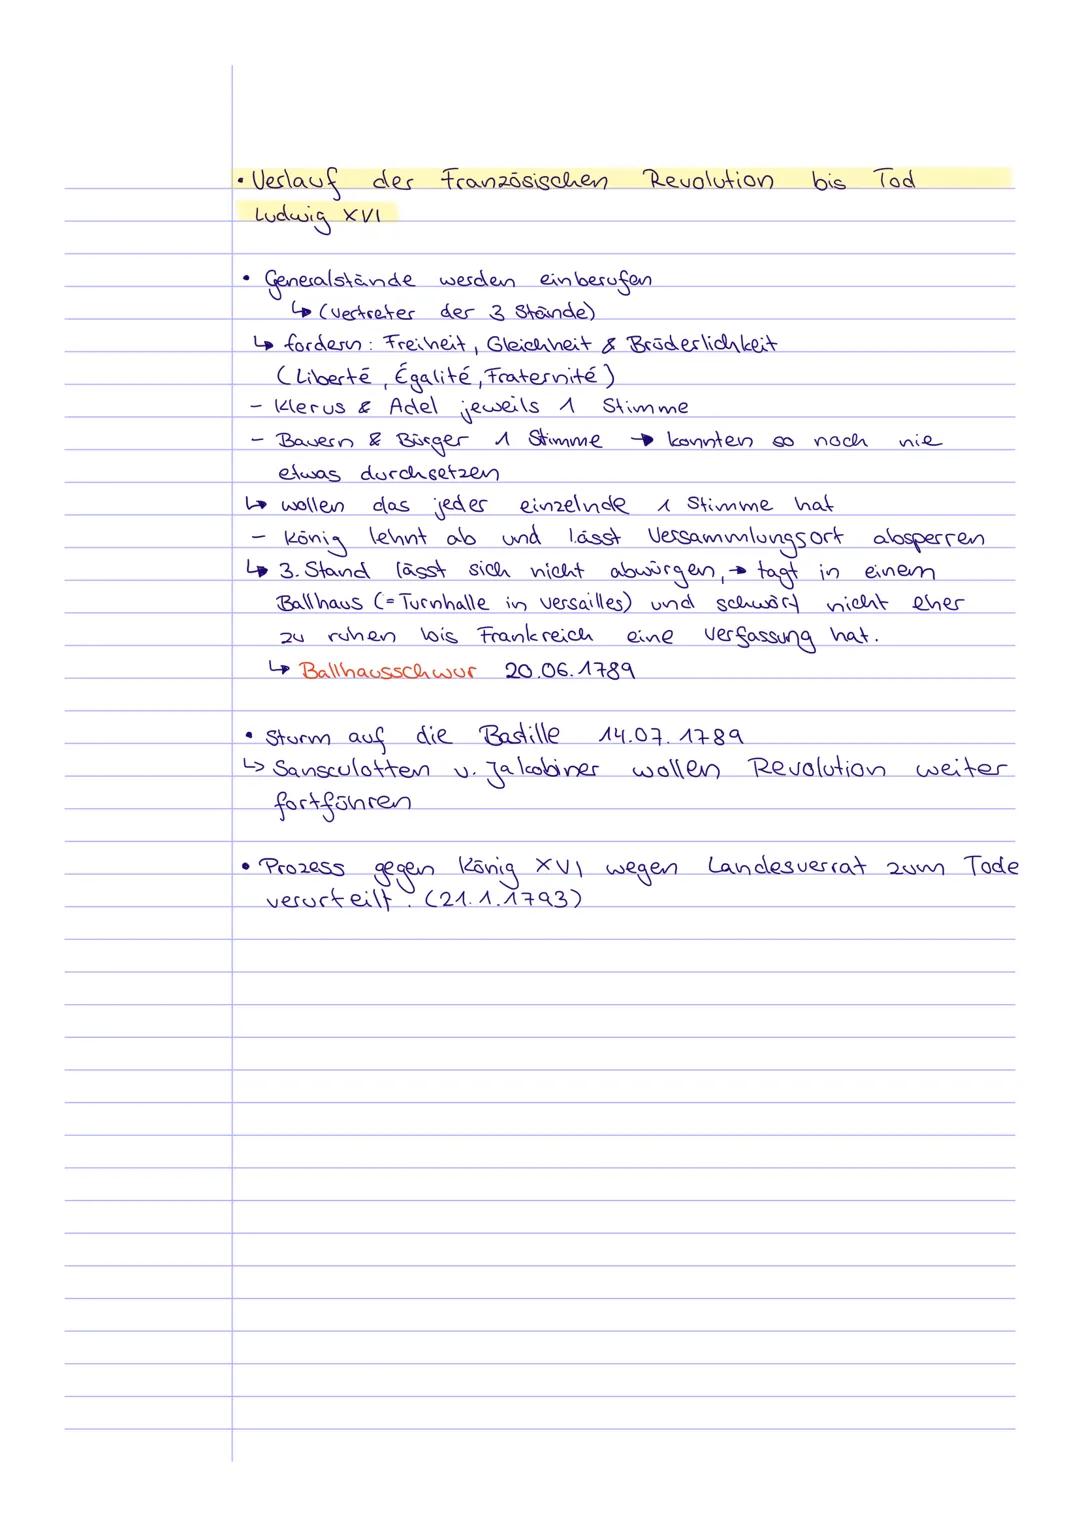 • Verlauf der Französischen Revolution bis Tod
Ludwig XVI
• Generalstände werden einberufen
↳ (Vertreter der 3 Stände)
↳ fordern: Freiheit, Gleichheit & Brüderlichkeit
(Liberté, Égalité, Fraternité)
- Klerus & Adel jeweils 1 Stimme
- Bauern & Bürger 1 Stimme → konnten so noch nie
etwas durchsetzen
↳ wollen das jeder einzelnde 1 Stimme hat
- König lehnt ab und lässt Versammlungsort absperren
↳ 3. Stand lässt sich nicht abwürgen, → tagt in einem
Ballhaus (= Turnhalle in Versailles) und schwört nicht eher
zu ruhen bis Frankreich eine Verfassung hat.
↳ Ballhausschwur 20.06.1789
• Sturm auf die Bastille 14.07.1789
↳ Sansculotten u. Jakobiner wollen Revolution weiter
fortführen
• Prozess gegen König XVI wegen Landesverrat zum Tode
verurteilt. (21.1.1793)